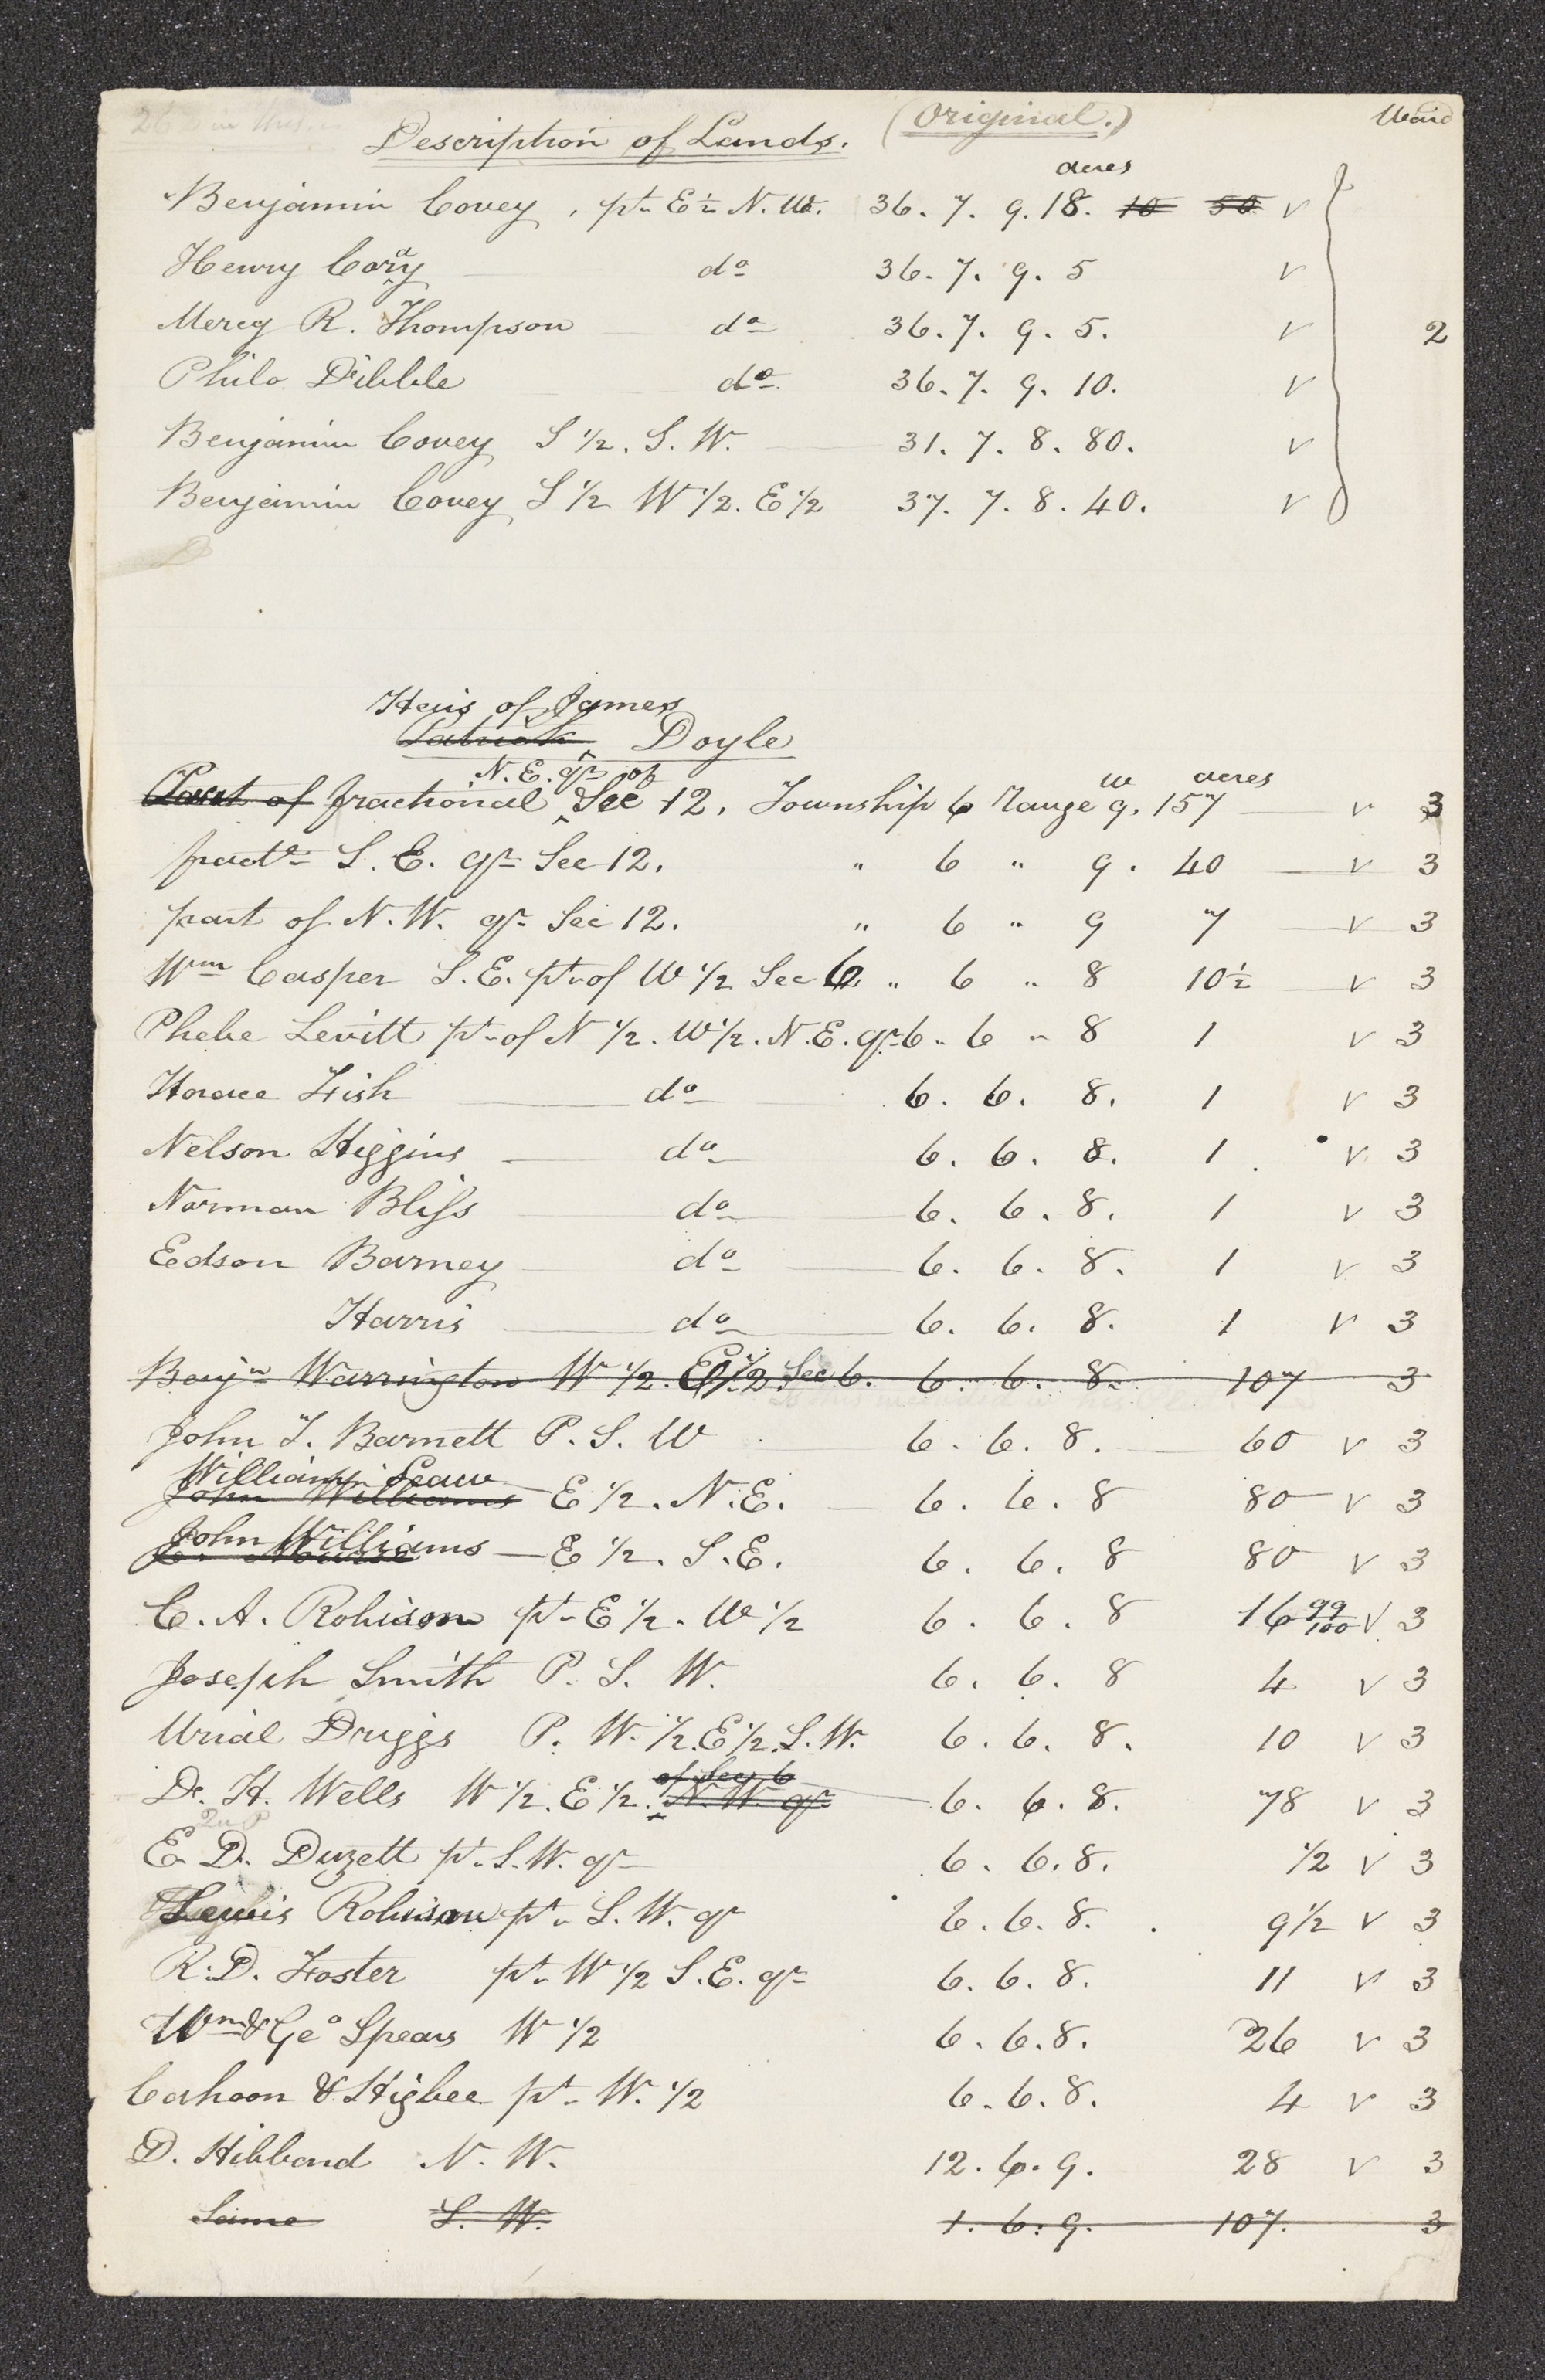 Description of Lands. (Original.) Ward
acres
Benjamin Covey, pt. E ½ N. W. 36. 7. 9. 18. 10 50 v
Henry Cory do 36. 7. 9. 5 v
Mercy R. Thompson do 36. 7. 9. 5. v 2
Philo Dibble do 36. 7. 9. 10. v
Benjamin Covey S ½. S. W. 31. 7. 8. 80. v
Benjamin Covey S ½ W ½. E ½ 37. 7. 8. 40. v
Heirs of James
Patrick Doyle
N. E. qr of W acres
Part of fractional Sec 12. Township 6 Range 9. 157 v 3
fractl S. E. qr Sec 12. " 6 " 9. 40 v 3
part of N. W. qr Sec 12. " 6 " 9 7 v 3
Wm Casper S. E. pt. of W ½ Sec 6 " 6 " 8 10½ v 3
Phebe Levitt pt. of N ½. W ½. N. E. qr 6 " 6 " 8 1 v 3
Horace Fish do 6. 6. 8. 1 v 3
Nelson Higgins do 6. 6. 8. 1 v 3
Norman Bliss do 6. 6. 8. 1 v 3
Edson Barney do 6. 6. 8. 1 v 3
Harris do 6. 6. 8. 1 v 3
Benjn Warrington W ½. E ½ Sec 6. 6. 6. 8. 107 3
John T. Barnett P. S. W 6. 6. 8. 60 v 3
William Law
John Williams E ½. N. E. 6. 6. 8 80 v 3
John Williams
E ½. S. E. 6. 6. 8 80 v 3
C. A. Robison pt. E ½. W ½ 6. 6. 8 16 99/100 v 3
Joseph Smith P. S. W. 6. 6. 8 4 v 3
Urial Driggs P. W. ½. E ½. S. W. 6. 6. 8. 10 v 3
of Sec 6
D. H. Wells W ½. E ½. N. W. qr 6. 6. 8. 78 v 3
E. D. Duzett pt. S. W. qr 6. 6. 8. ½ v 3
Lewis Robison pt. S. W. qr 6. 6. 8. 9½ v 3
R. D. Foster pt. W ½ S. E. qr 6. 6. 8. 11 v 3
Wm & Geo Spears W ½ 6. 6. 8. 26 v 3
Cahoon & Higbee pt. W. ½ 6. 6. 8. 4 v 3
D. Hibbard N. W. 12. 6. 9. 28 v 3
Same S. W. 1. 6. 9. 107. 3